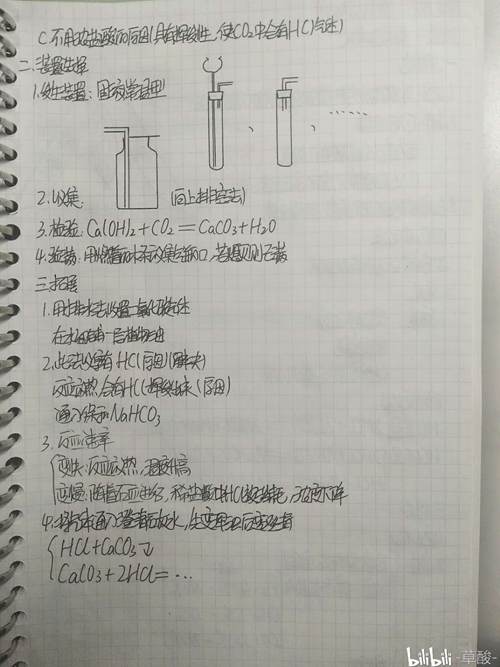 C.不用浓盐酸的原因(具有挥发性,使CO₂中含有HCl气体)
二.装置选择
1.发生装置:固液常温型
、 、 ……
2.收集: (向上排空气法)
3.检验:Ca(OH)₂+CO₂=CaCO₃+H₂O
4.验满:用燃着的木条 集气瓶口,若熄灭则已满
三.拓展
1.用排水法收集二氧化碳
在水面 一层植物油
2.此法 有HCl(原因)
反应放热,会有HCl挥发出来(原因)
通入饱和NaHCO₃
3.反应速率
变快:反应放热,温度升高
变慢:随着反应进行,稀盐酸中HCl被消耗, 下降
4.将气体通入澄清石灰水,先变 后变
HCl+CaCO₃
CaCO₃+2HCl=…
bilibili -草酸-